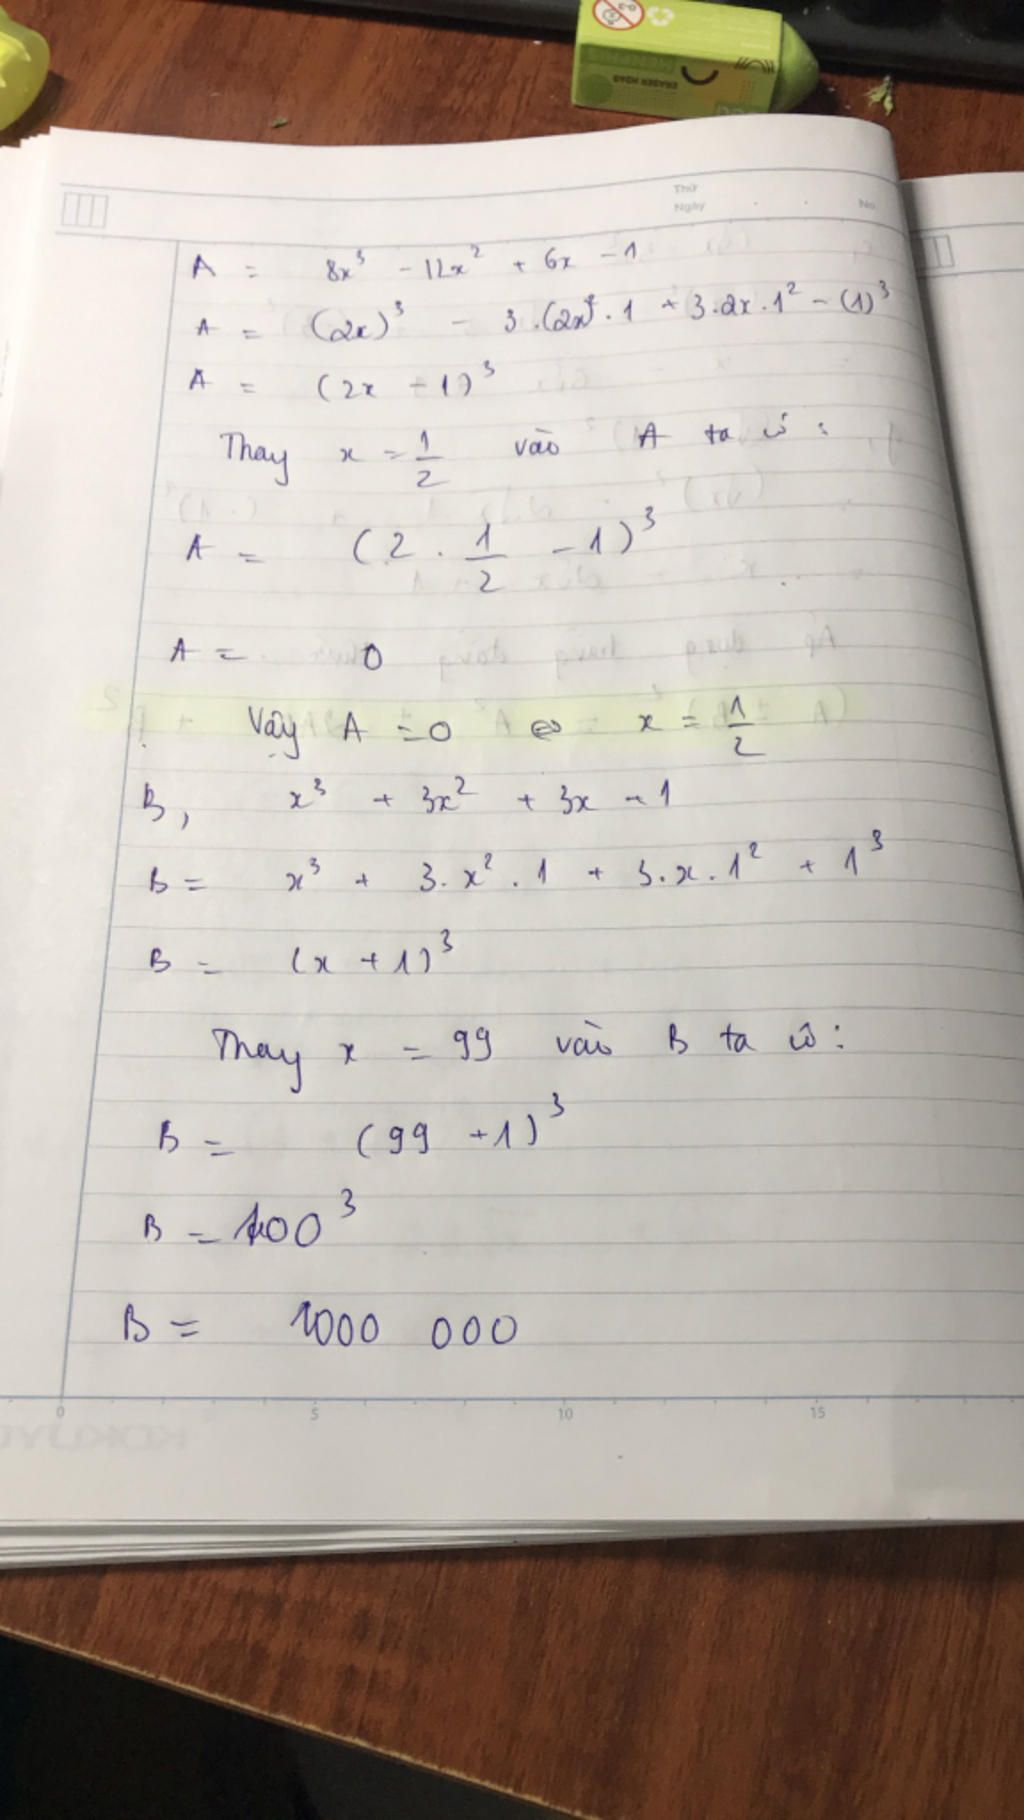 Thứ
Ngày
No.
A = 8x³ - 12x² + 6x - 1
A = (2x)³ - 3.(2x)².1 + 3.2x.1² - (1)³
A = (2x - 1)³
Thay x = 1/2 vào A ta có:
A = (2 . 1/2 - 1)³
A = 0
Vậy A = 0 ⇔ x = 1/2
B, x³ + 3x² + 3x + 1
B = x³ + 3.x².1 + 3.x.1² + 1³
B = (x + 1)³
Thay x = 99 vào B ta có:
B = (99 + 1)³
B = 100³
B = 1000 000
0 5 10 15